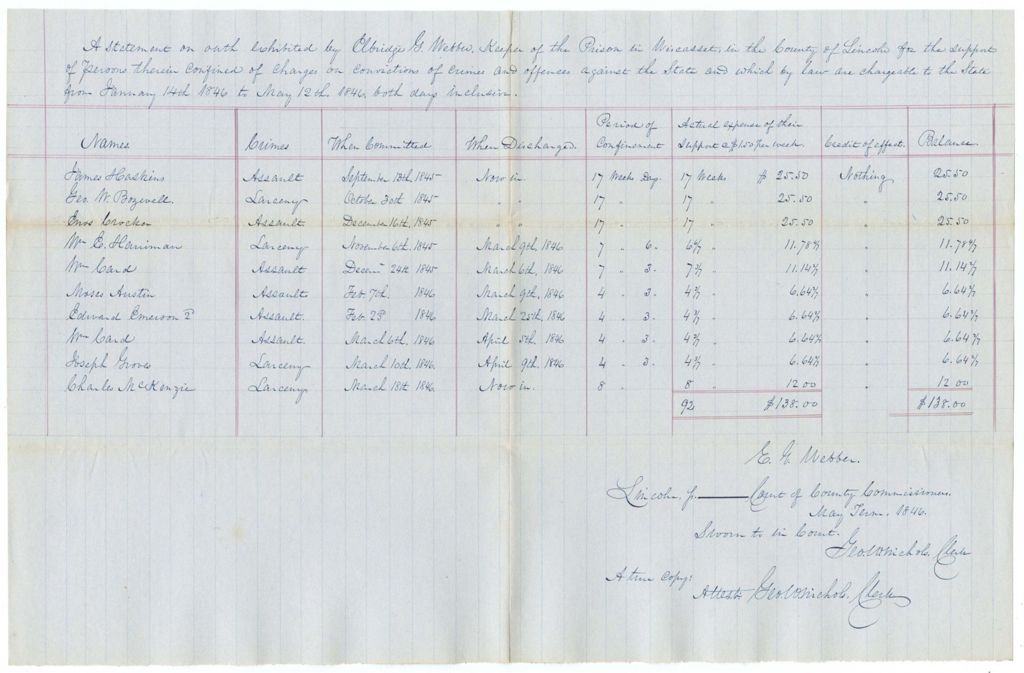 A statement on oath exhibited by Elbridge G. Webber, Keeper of the Prison in Wiscasset, in the County of Lincoln for the support
of Persons therein confined of charges or convictions of crimes and offences against the State and which by law are chargeable to the State
from January 14th 1846 to May 12th, 1846, both days inclusive.
Names Crimes When Committed When Discharged. Period of Confinement Actual expense of their Support @ $1.50 per week. Credit of effect. Balance.
James Haskins Assault September 13th, 1845 Now in. 17 Weeks Day. 17 Weeks $ 25.50 Nothing 25.50
Geo. W. Larceny October 30th 1845 " " 17 " 17 " 25.50 " 25.50
Enos Crocker Assault December 16th, 1845 " " 17 " 17 " 25.50 " 25.50
Wm E. Harriman Larceny November 6th, 1845 March 9th, 1846 7 " 6. 6 6/7 " 11.78 4/7 " 11.78 4/7
Wm Card Assault Decem 24th 1845 March 6th, 1846 7 " 3. 7 3/7 " 11.14 2/7 " 11.14 2/7
Moses Austin Assault Feb. 7th 1846 March 9th, 1846 4 " 3. 4 3/7 " 6.64 2/7 " 6.64 2/7
Edward Emerson 2d Assault. Feb. 23 1846 March 25th, 1846 4 " 3. 4 3/7 " 6.64 2/7 " 6.64 2/7
Wm Card Assault. March 6th, 1846 April 5th, 1846 4 " 3. 4 3/7 " 6.64 2/7 " 6.64 2/7
Joseph Grover Larceny March 10th, 1846. April 9th, 1846 4 " 3. 4 3/7 " 6.64 2/7 " 6.64 2/7
Charles McKenzie Larceny March 18th 1846. Now in. 8 " 8 " 12 00 " 12 00
92 $138.00 $138.00
E. G. Webber.
Lincoln, ss. Court of County Commissioners.
May Term. 1846.
Sworn to in Court.
Geo. B. Nichols. Clerk
A true copy:
Attest: Geo. B. Nichols. Clerk